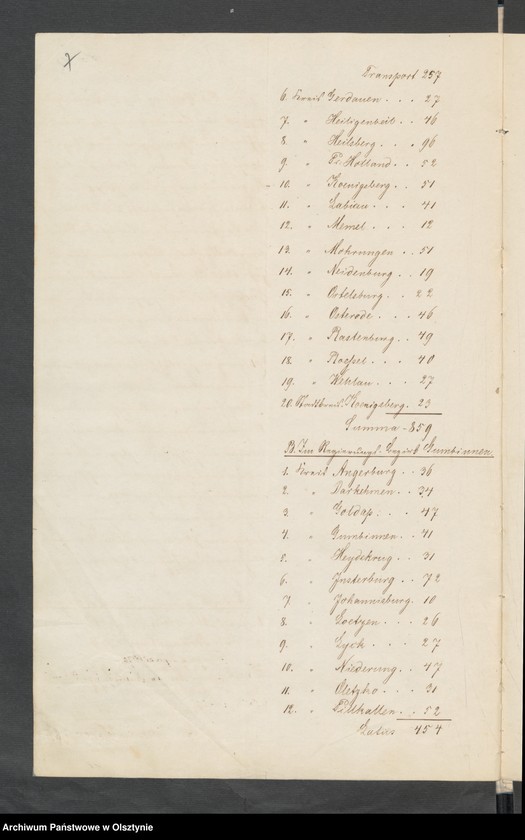 7
Transport 257
6. Kreis Gerdauen . . . 27
7. " Heiligenbeil . . 46
8. " Heilsberg . . . 96
9. " Pr. Holland . . 52
10. " Koenigsberg . . 51
11. " Labiau . . . 41
12. " Memel . . . 12
13. " Mohrungen . . 51
14. " Neidenburg . . 19
15. " Ortelsburg . . 22
16. " Osterode . . . 46
17. " Rastenburg . . 49
18. " Roessel . . . 40
19. " Wehlau . . . 27
20. Stadtkreis Koenigsberg . 23
Summa - 859
B. Im Regierungs-Bezirk Gumbinnen.
1. Kreis Angerburg . . 36
2. " Darkehmen . . 34
3. " Goldap . . . 47
4. " Gumbinnen . . 41
5. " Heydekrug . . 31
6. " Insterburg . . 72
7. " Johannisburg . 10
8. " Loetzen . . . 26
9. " Lyck . . . 27
10. " Niederung . . 47
11. " Oletzko . . . 31
12. " Pillkallen . . 52
Latus 454
Archiwum Państwowe w Olsztynie